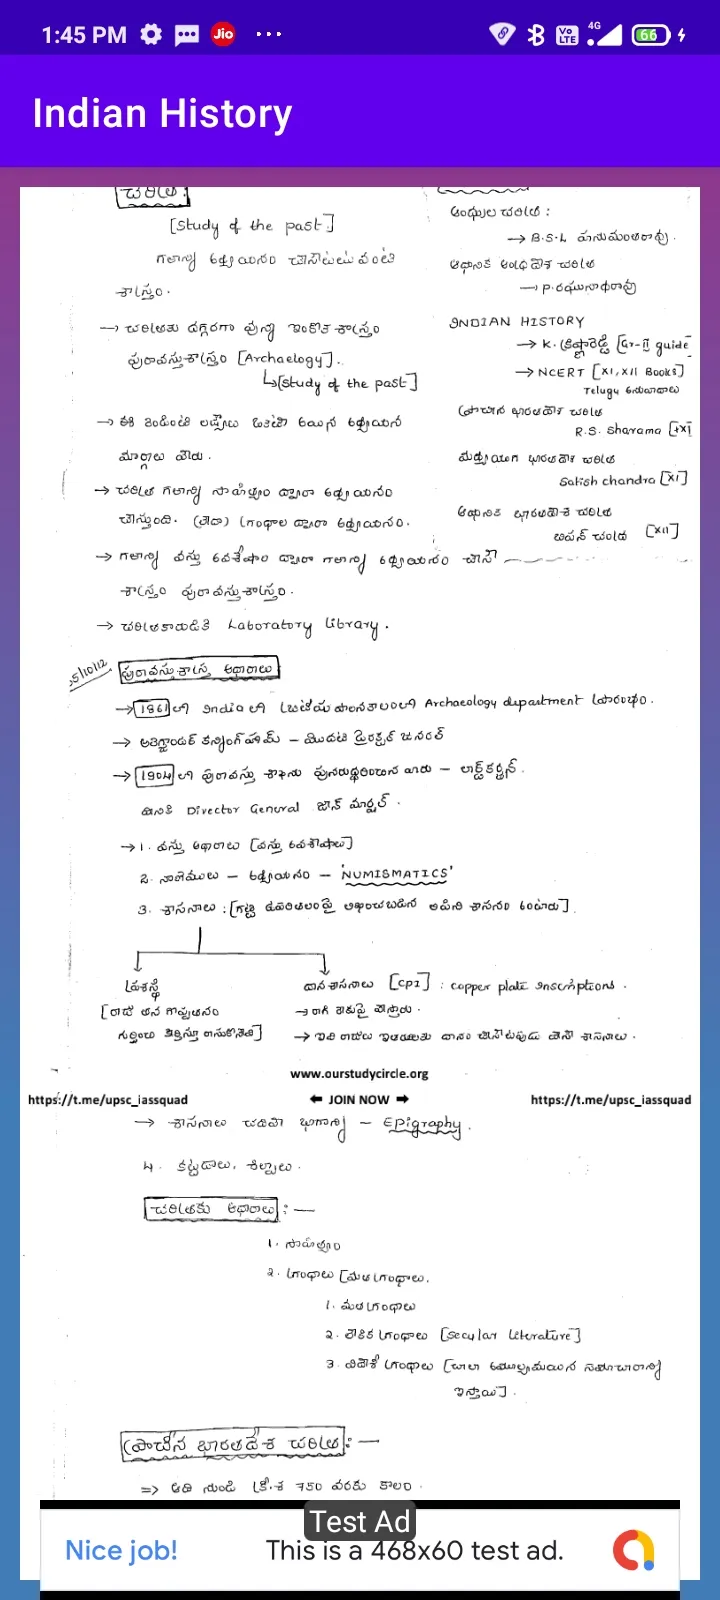 1:45 PM
4G
Vo LTE
66
Jio
Indian History
చరిత్ర:
[Study of the past]
గతాన్ని అధ్యయనం చేసేటటువంటి
శాస్త్రం.
→ చరిత్రకు దగ్గరగా వున్న ఇంకొక శాస్త్రం
పురావస్తుశాస్త్రం [Archaelogy].
↳[Study of the past]
→ ఈ రెండింటి లక్ష్యం ఒకటే అయిన అధ్యయన
మార్గాలు వేరు.
→ చరిత్ర గతాన్ని సాహిత్యం ద్వారా అధ్యయనం
చేస్తుంది. (లేదా) గ్రంథాల ద్వారా అధ్యయనం.
→ గతాన్ని వస్తు అవశేషాల ద్వారా గతాన్ని అధ్యయనం చేసే
శాస్త్రం పురావస్తుశాస్త్రం.
→ చరిత్రకారుడికి Laboratory Library.
ఆంధ్రుల చరిత్ర :
→ B.S.L హనుమంతరావు.
ఆధునిక ఆంధ్రదేశ చరిత్ర
→ P.రఘునాథరావు
INDIAN HISTORY
→ K. కృష్ణారెడ్డి [Gr-II guide]
→ NCERT [XI, XII Books]
Telugu అనువాదాలు
ప్రాచీన భారతదేశ చరిత్ర
R.S. Sharama [XI]
మధ్యయుగ భారతదేశ చరిత్ర
Satish chandra [XI]
ఆధునిక భారతదేశ చరిత్ర
బిపన్ చంద్ర [XII]
5/10/12
పురావస్తుశాస్త్ర ఆధారాలు
→ 1861 లో India లో బ్రిటీషు పాలనాకాలంలో Archaeology department ప్రారంభం.
→ అలెగ్జాండర్ కన్నింగ్‌హామ్ - మొదటి డైరెక్టర్ జనరల్
→ 1904 లో పురావస్తు శాఖను పునరుద్ధరించిన వారు - లార్డ్ కర్జన్.
దీనికి Director General జాన్ మార్షల్.
→ 1. వస్తు ఆధారాలు [వస్తు అవశేషాలు]
2. నాణెములు - అధ్యయనం - 'NUMISMATICS'
3. శాసనాలు : [గట్టి ఉపరితలంపై లిఖించబడిన లిపిని శాసనం అంటారు].
ప్రశస్థి
[రాజు తన గొప్పతనం
గుర్తించి కీర్తిస్తూ రాసుకొనేది]
దాన శాసనాలు [CPI] : copper plate Inscriptions.
→ రాగి రేకుపై వేస్తారు.
→ ఇవి రాజులు ఇతరులకు దానం చేసేటప్పుడు వేసే శాసనాలు.
www.ourstudycircle.org
https://t.me/upsc_iassquad
⬅ JOIN NOW ➡
https://t.me/upsc_iassquad
→ శాసనాలు చదివే భాగాన్ని - Epigraphy.
4. కట్టడాలు, శిల్పాలు.
చరిత్రకు ఆధారాలు :-
1. సాహిత్యం
2. గ్రంథాలు [మత గ్రంథాలు.
1. మత గ్రంథాలు
2. లౌకిక గ్రంథాలు [Secular Literature]
3. విదేశీ గ్రంథాలు [చాలా అమూల్యమయిన సమాచారాన్ని
ఇస్తాయి].
ప్రాచీన భారతదేశ చరిత్ర :-
⇒ ఆది నుండి క్రీ.శ 750 వరకు కాలం.
Test Ad
Nice job!
This is a 468x60 test ad.